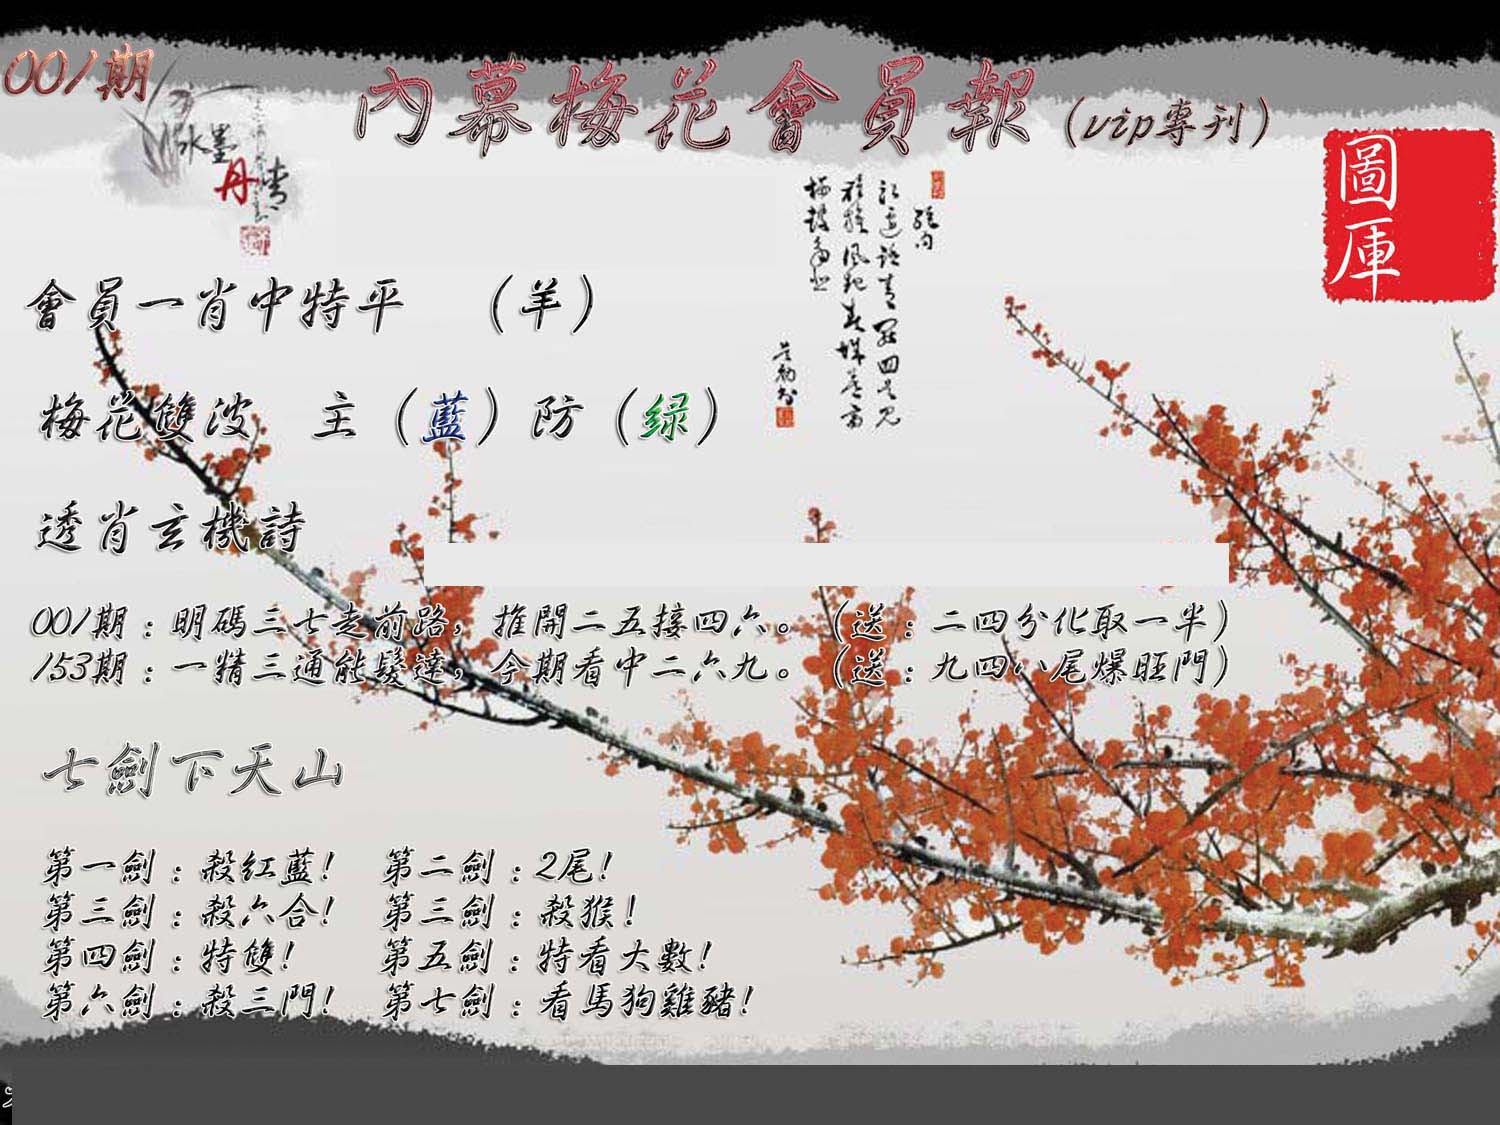 001期
內幕梅花會員報（vip專刊）
水墨
丹情
圖
庫
會員一肖中特平 （羊）
梅花雙波 主（藍）防（緑）
透肖玄機詩
001期：明碼三七走前路，推開二五接四六。（送：二四分化取一半）
153期：一精三通能發達，今期看中二六九。（送：九四八尾爆旺門）
七劍下天山
第一劍：殺紅藍！ 第二劍：2尾！
第三劍：殺六合！ 第三劍：殺猴！
第四劍：特雙！ 第五劍：特看大數！
第六劍：殺三門！ 第七劍：看馬狗雞豬！